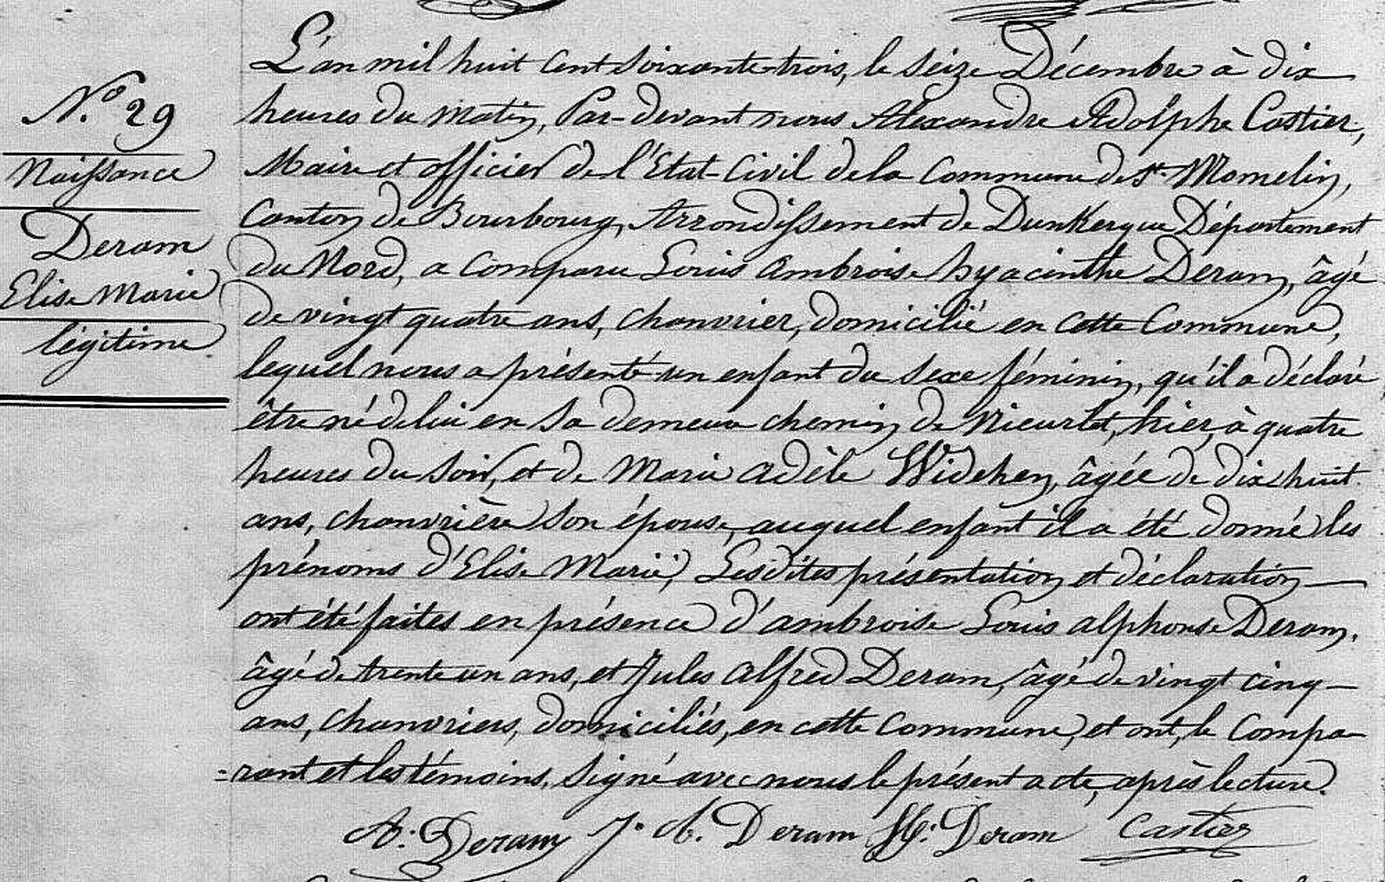 N.° 29
Naissance
Deram
Elise Marie
légitime
L'an mil huit cent soixante-trois, le seize Décembre à dix
heures du matin, Par-devant nous Alexandre Adolphe Castier,
Maire et officier de l'Etat-Civil de la Commune de St. Momelin,
Canton de Bourbourg, Arrondissement de Dunkerque Département
du Nord, a comparu Louis Ambroise hyacinthe Deram, âgé
de vingt quatre ans, chanvrier, domicilié en cette Commune,
lequel nous a présenté un enfant du sexe féminin, qu'il a déclaré
être né de lui en sa demeure chemin de Nieurlet, hier, à quatre
heures du soir, et de Marie adèle Widehen, âgée de dix huit
ans, chanvrière son épouse, auquel enfant il a été donné les
prénoms d'Elise Marie, Lesdites présentation et déclaration
ont été faites en présence d'ambroise Louis alphonse Deram,
âgé de trente un ans, et Jules alfred Deram, âgé de vingt cinq
ans, chanvriers, domiciliés, en cette commune, et ont, le compa-
=rant et les témoins, signé avec nous le présent acte, après lecture.
A. Deram J. A. Deram H. Deram Castier